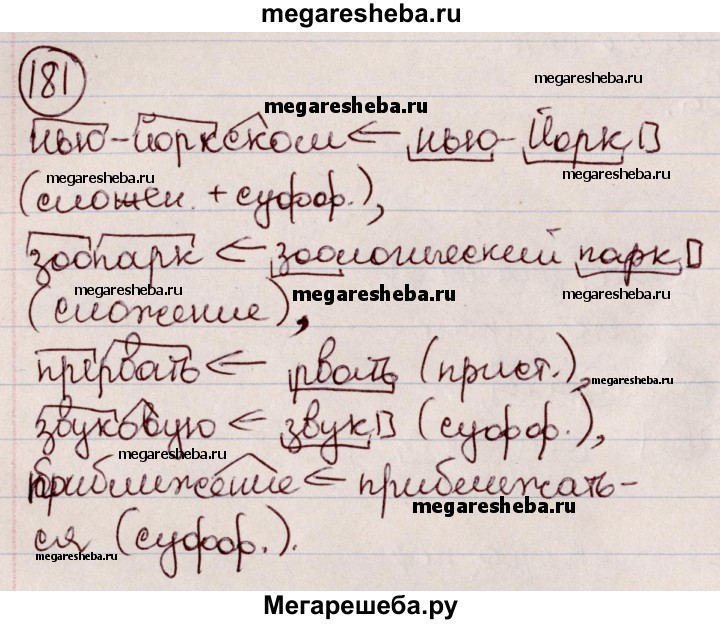 megaresheba.ru
181
megaresheba.ru
megaresheba.ru
нью-йоркском ← Нью-Йорк
megaresheba.ru megaresheba.ru
(сложен. + суффор.),
зоопарк ← зоологический парк
megaresheba.ru megaresheba.ru megaresheba.ru
(сложение),
прервать ← рвать (прист.),
megaresheba.ru
звуковую ← звук (суффор.),
megaresheba.ru
приближение ← приближать-
megaresheba.ru
ся (суффор.).
megaresheba.ru
Мегарешеба.ру